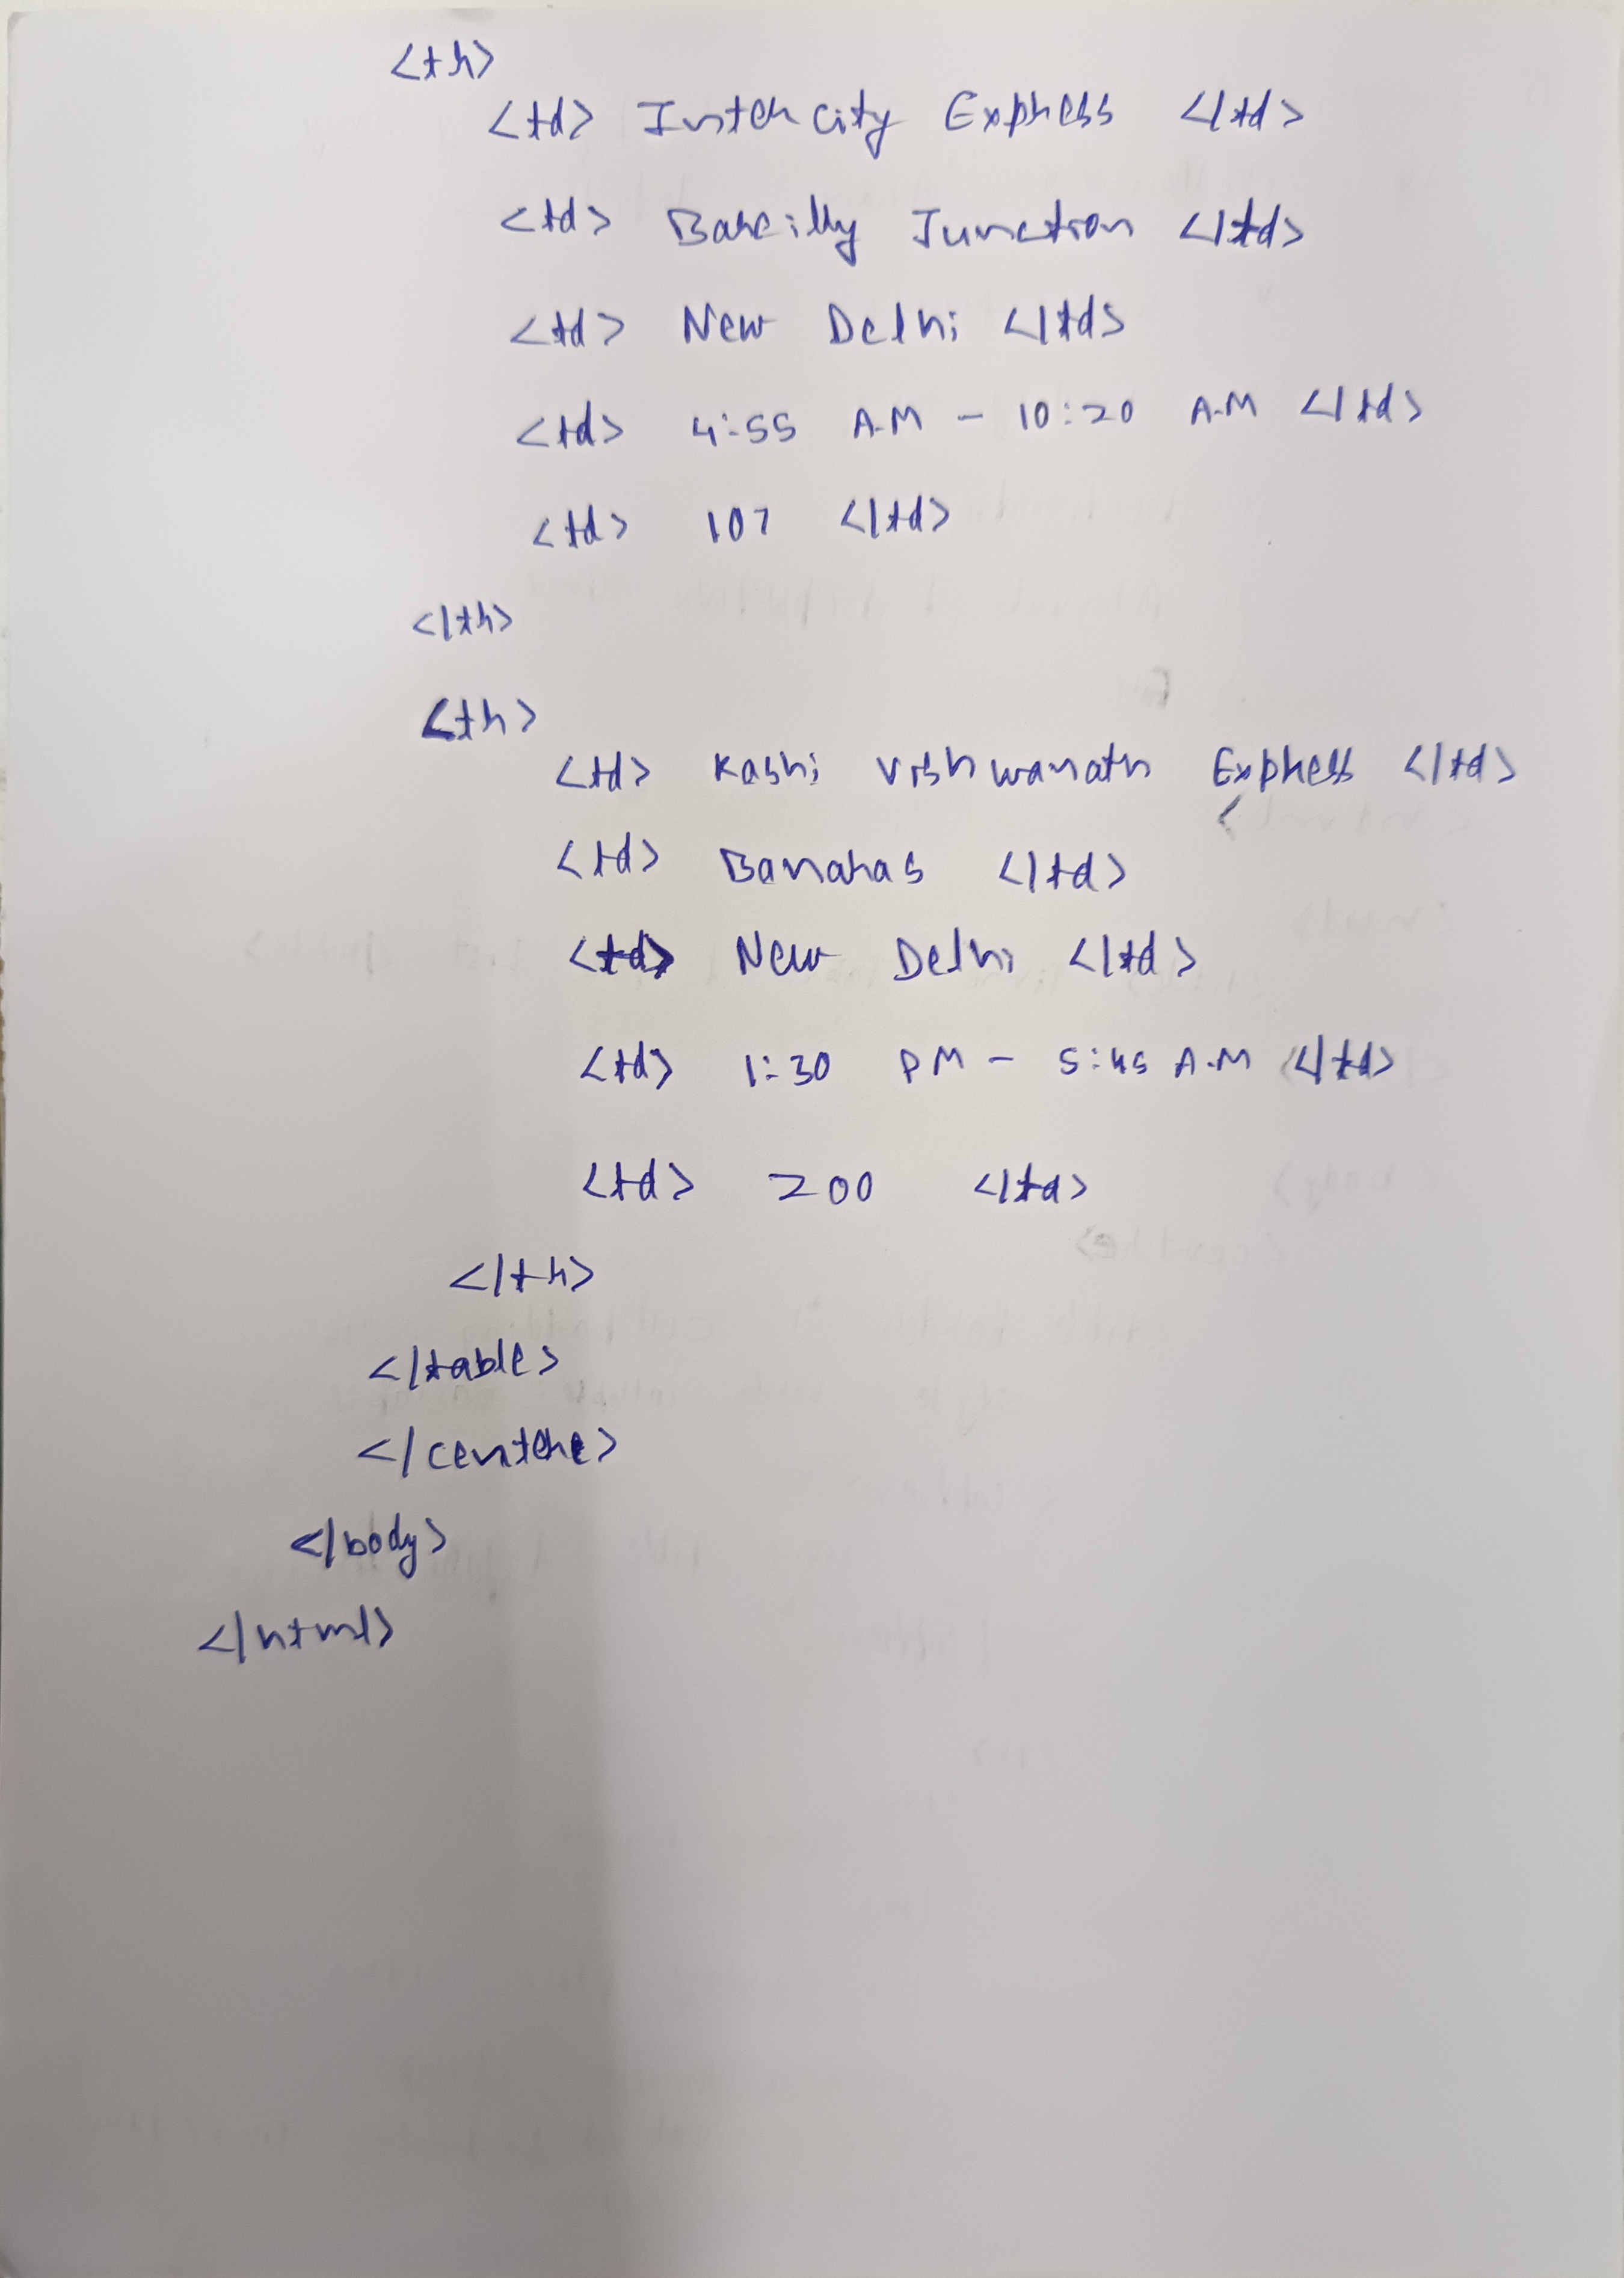 <tr>
<td> Inter city Express </td>
<td> Bareilly Junction </td>
<td> New Delhi </td>
<td> 4:55 A.M - 10:20 A.M </td>
<td> 107 </td>
</tr>
<tr>
<td> Kashi Vishwanath Express </td>
<td> Banaras </td>
<td> New Delhi </td>
<td> 1:30 PM - 5:45 A.M </td>
<td> 200 </td>
</tr>
</table>
</centere>
</body>
</html>